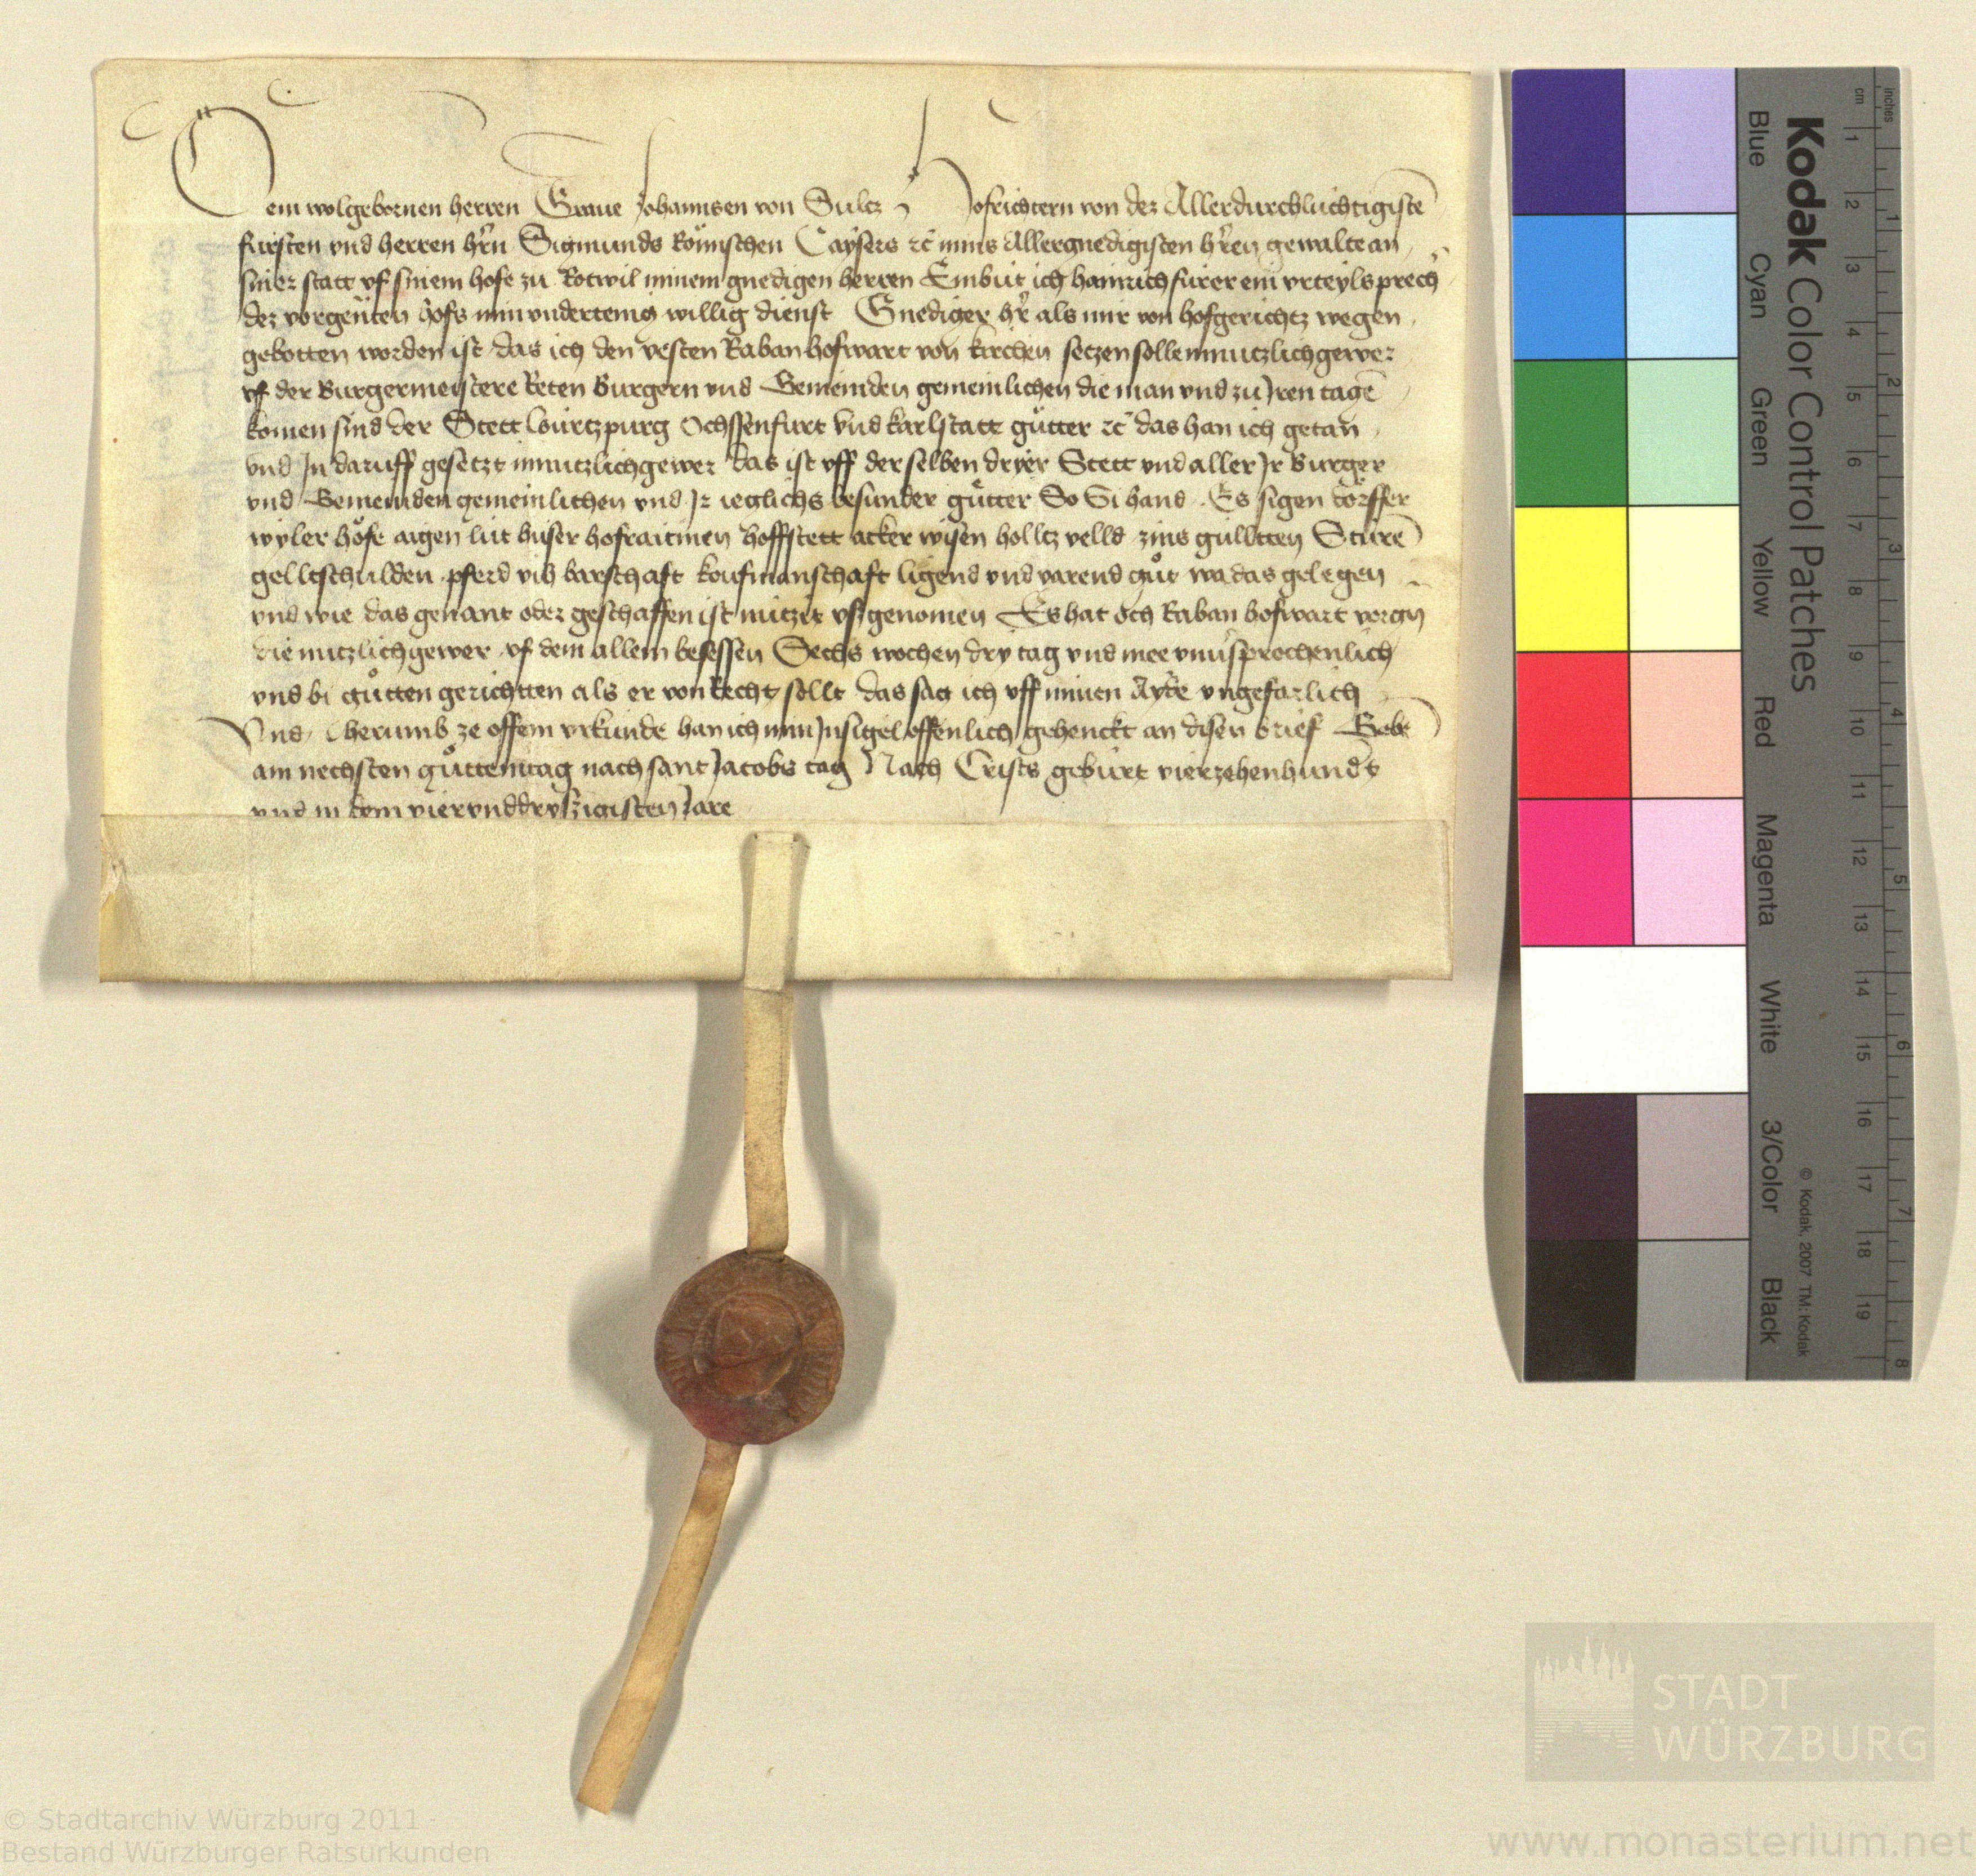 Dem wolgebornen herren Graue Johannsen von Sultz Hofrichtern von der Allerdurchluchtigiste
fürsten vnd herren hr̃n Sigmunds Römschen Caÿsers ꝛc̃ mins Allergnedigisten hr̃en gewalte an
siner statt vf sinem hofe zu Rotwil minem gnedigen herren Embüt ich hainrich furer ein vrteylsprech᾽
dez vorgen̄ten hofs min vndertenig willig dienst Gnediger hr̃ als mir von hofgerichtz wegen
gebotten worden ist das ich den vesten Raban hofwart von kirchen setzen solle in nutzlich gewer
vf der Burgermeistere Reten Burgern vnd Gemeinden gemeinlichen die man vnd zu Jren tagē
komen sind der Stett wurtzpurg Ochssenfurt vnd karlstatt gütter ꝛc̃ das han ich getan
vnd Jn daruff gesetzt in nutzlich gewer das ist vff der selben dryer Stett vnd aller Jr Burger
vnd Gemeinden gemeinlichen vnd Jr ieglichs besunder gütter So Si hand Es sigen dörffer
wyler höfe aigen lüt hüser hofraitinen hoffstett acker wisen holltz velld zins gülltten Stürē
gelltschulden pferd vih barschaft koufmanschaft ligend vnd varend gůt wa das gelegen
vnd wie das genant oder geschaffen ist nützit vsgenomen Es hat och Raban hofwart vorgn̄
die nutzlich gewer vf dem allem besessen Sechs wochen dry tag vnd mee vnuersprochenlich
vnd bi gůtten gerichtten als er von Recht sollt das sag ich vff minen Ayde vngefarlich
Vnd herumb ze offem vrkunde han ich min Jnsigel offenlich gehenckt an disen brief Gebē
am nechsten gůttemtag nach sant Jacobs tag Nach Crists geburt vierzehenhund᾽t
vnd in dem vierunddryßzigisten Jare
Kodak Color Control Patches
Blue
Cyan
Green
Yellow
Red
Magenta
White
3/Color
Black
© Kodak, 2007 TM: Kodak
cm 1 2 3 4 5 6 7 8 9 10 11 12 13 14 15 16 17 18 19
inches 1 2 3 4 5 6 7 8
STADT
WÜRZBURG
© Stadtarchiv Würzburg 2011
Bestand Würzburger Ratsurkunden
www.monasterium.net